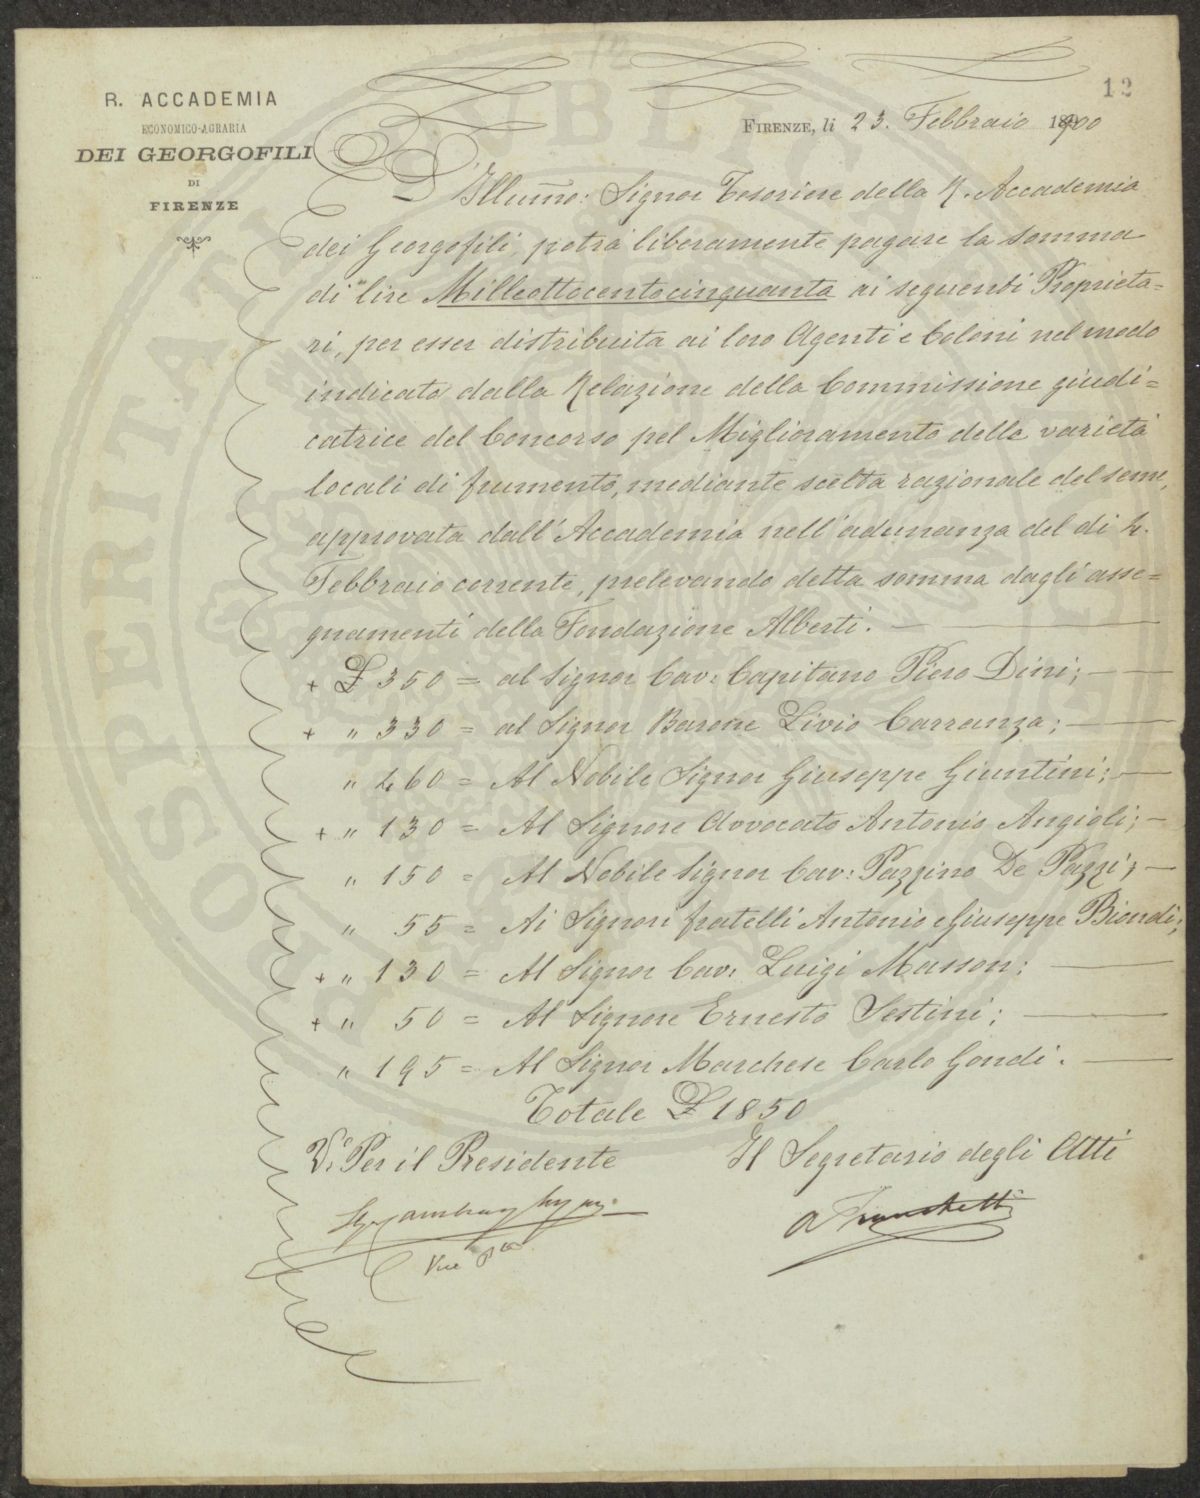 12
R. ACCADEMIA
ECONOMICO-AGRARIA
DEI GEORGOFILI
DI
FIRENZE
FIRENZE, li 23. Febbraio 1900
L'Illumo: Signor Tesoriere della R. Accademia
dei Georgofili, potrà liberamente pagare la somma
di lire Milleottocentocinquanta ai seguenti Proprieta=
ri, per esser distribuita ai loro Agenti e Coloni nel modo
indicato dalla Relazione della Commissione giudi=
catrice del Concorso pel Miglioramento delle varietà
locali di frumento, mediante scelta razionale del seme,
approvata dall'Accademia nell'adunanza del di 4.
Febbraio corrente, prelevando detta somma dagli asse=
gnamenti della Fondazione Alberti. —
+ £ 350 = al Signor Cav: Capitano Piero Dini; —
+ " 330 = al Signor Barone Livio Carranza; —
" 460 = Al Nobile Signor Giuseppe Giuntini; —
+ " 130 = Al Signore Avvocato Antonio Angioli; —
" 150 = Al Nobile Signor Cav: Pazzino De Pazzi; —
" 55 = Ai Signori fratelli Antonio e Giuseppe Biondi;
+ " 130 = Al Signor Cav: Luigi Masson; —
+ " 50 = Al Signore Ernesto Sestini; —
" 195 = Al Signor Marchese Carlo Gondi. —
Totale £ 1850
V° Per il Presidente
Il Segretario degli Atti
A Franchetti
Vice Pte
PROSPERITATI PUBLICAE AUGENDAE